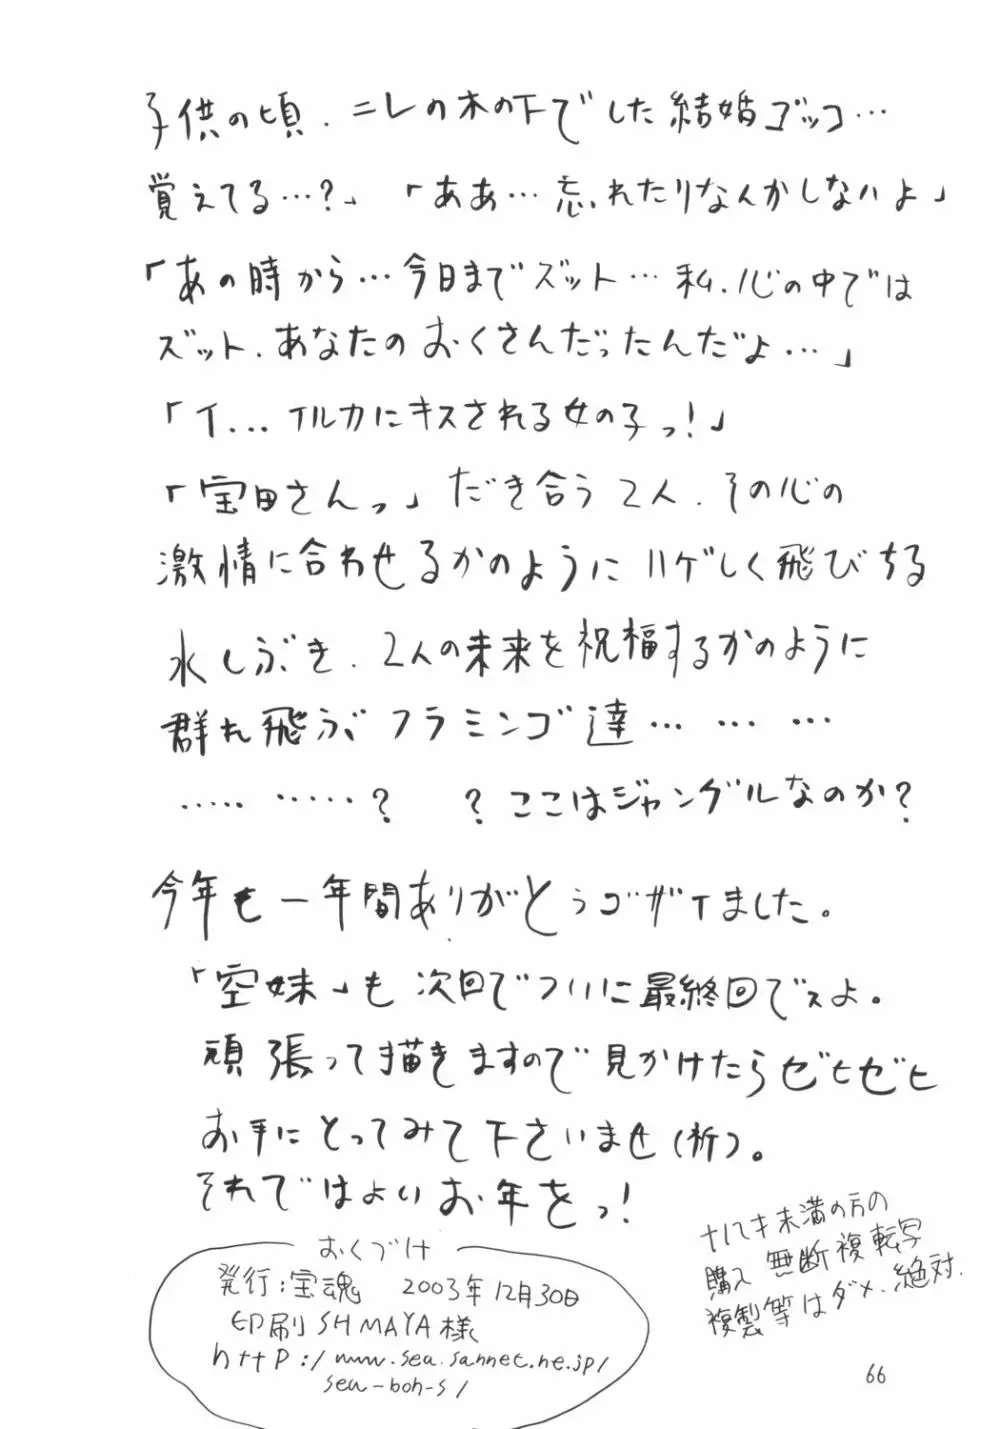 子供の頃、ニレの木の下でした結婚ゴッコ…
覚えてる…?」「ああ…忘れたりなんかしないよ」
「あの時から…今日までズット…私、心の中では
ズット、あなたのおくさんだったんだよ…」
「イ…イルカにキスされる女の子っ!」
「宝田さんっ」だき合う2人、その心の
激情に合わせるかのようにハゲしく飛びちる
水しぶき、2人の未来を祝福するかのように
群れ飛ぶフラミンゴ達… … …
…… ……? ?ここはジャングルなのか?
今年も一年間ありがとうゴザイました。
「空妹」も次回でついに最終回でスよ。
頑張って描きますので見かけたらゼヒゼヒ
お手にとってみて下さいませ(祈)。
それではよいお年をっ!
おくづけ
発行:宝魂 2003年12月30日
印刷 SHMAYA様
http:/www.sea.sannet.ne.jp/
sea-boh-s/
十八才未満の方の
購入 無断複転写
複製等はダメ、絶対.
66